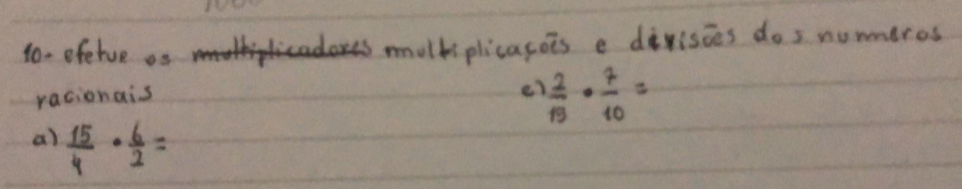 10- efetue os multiplicadores multiplicaçoẽs e divisões dos nummeros
racionais
c) 2/19 • 7/10 =
a) 15/4 • 6/2 =